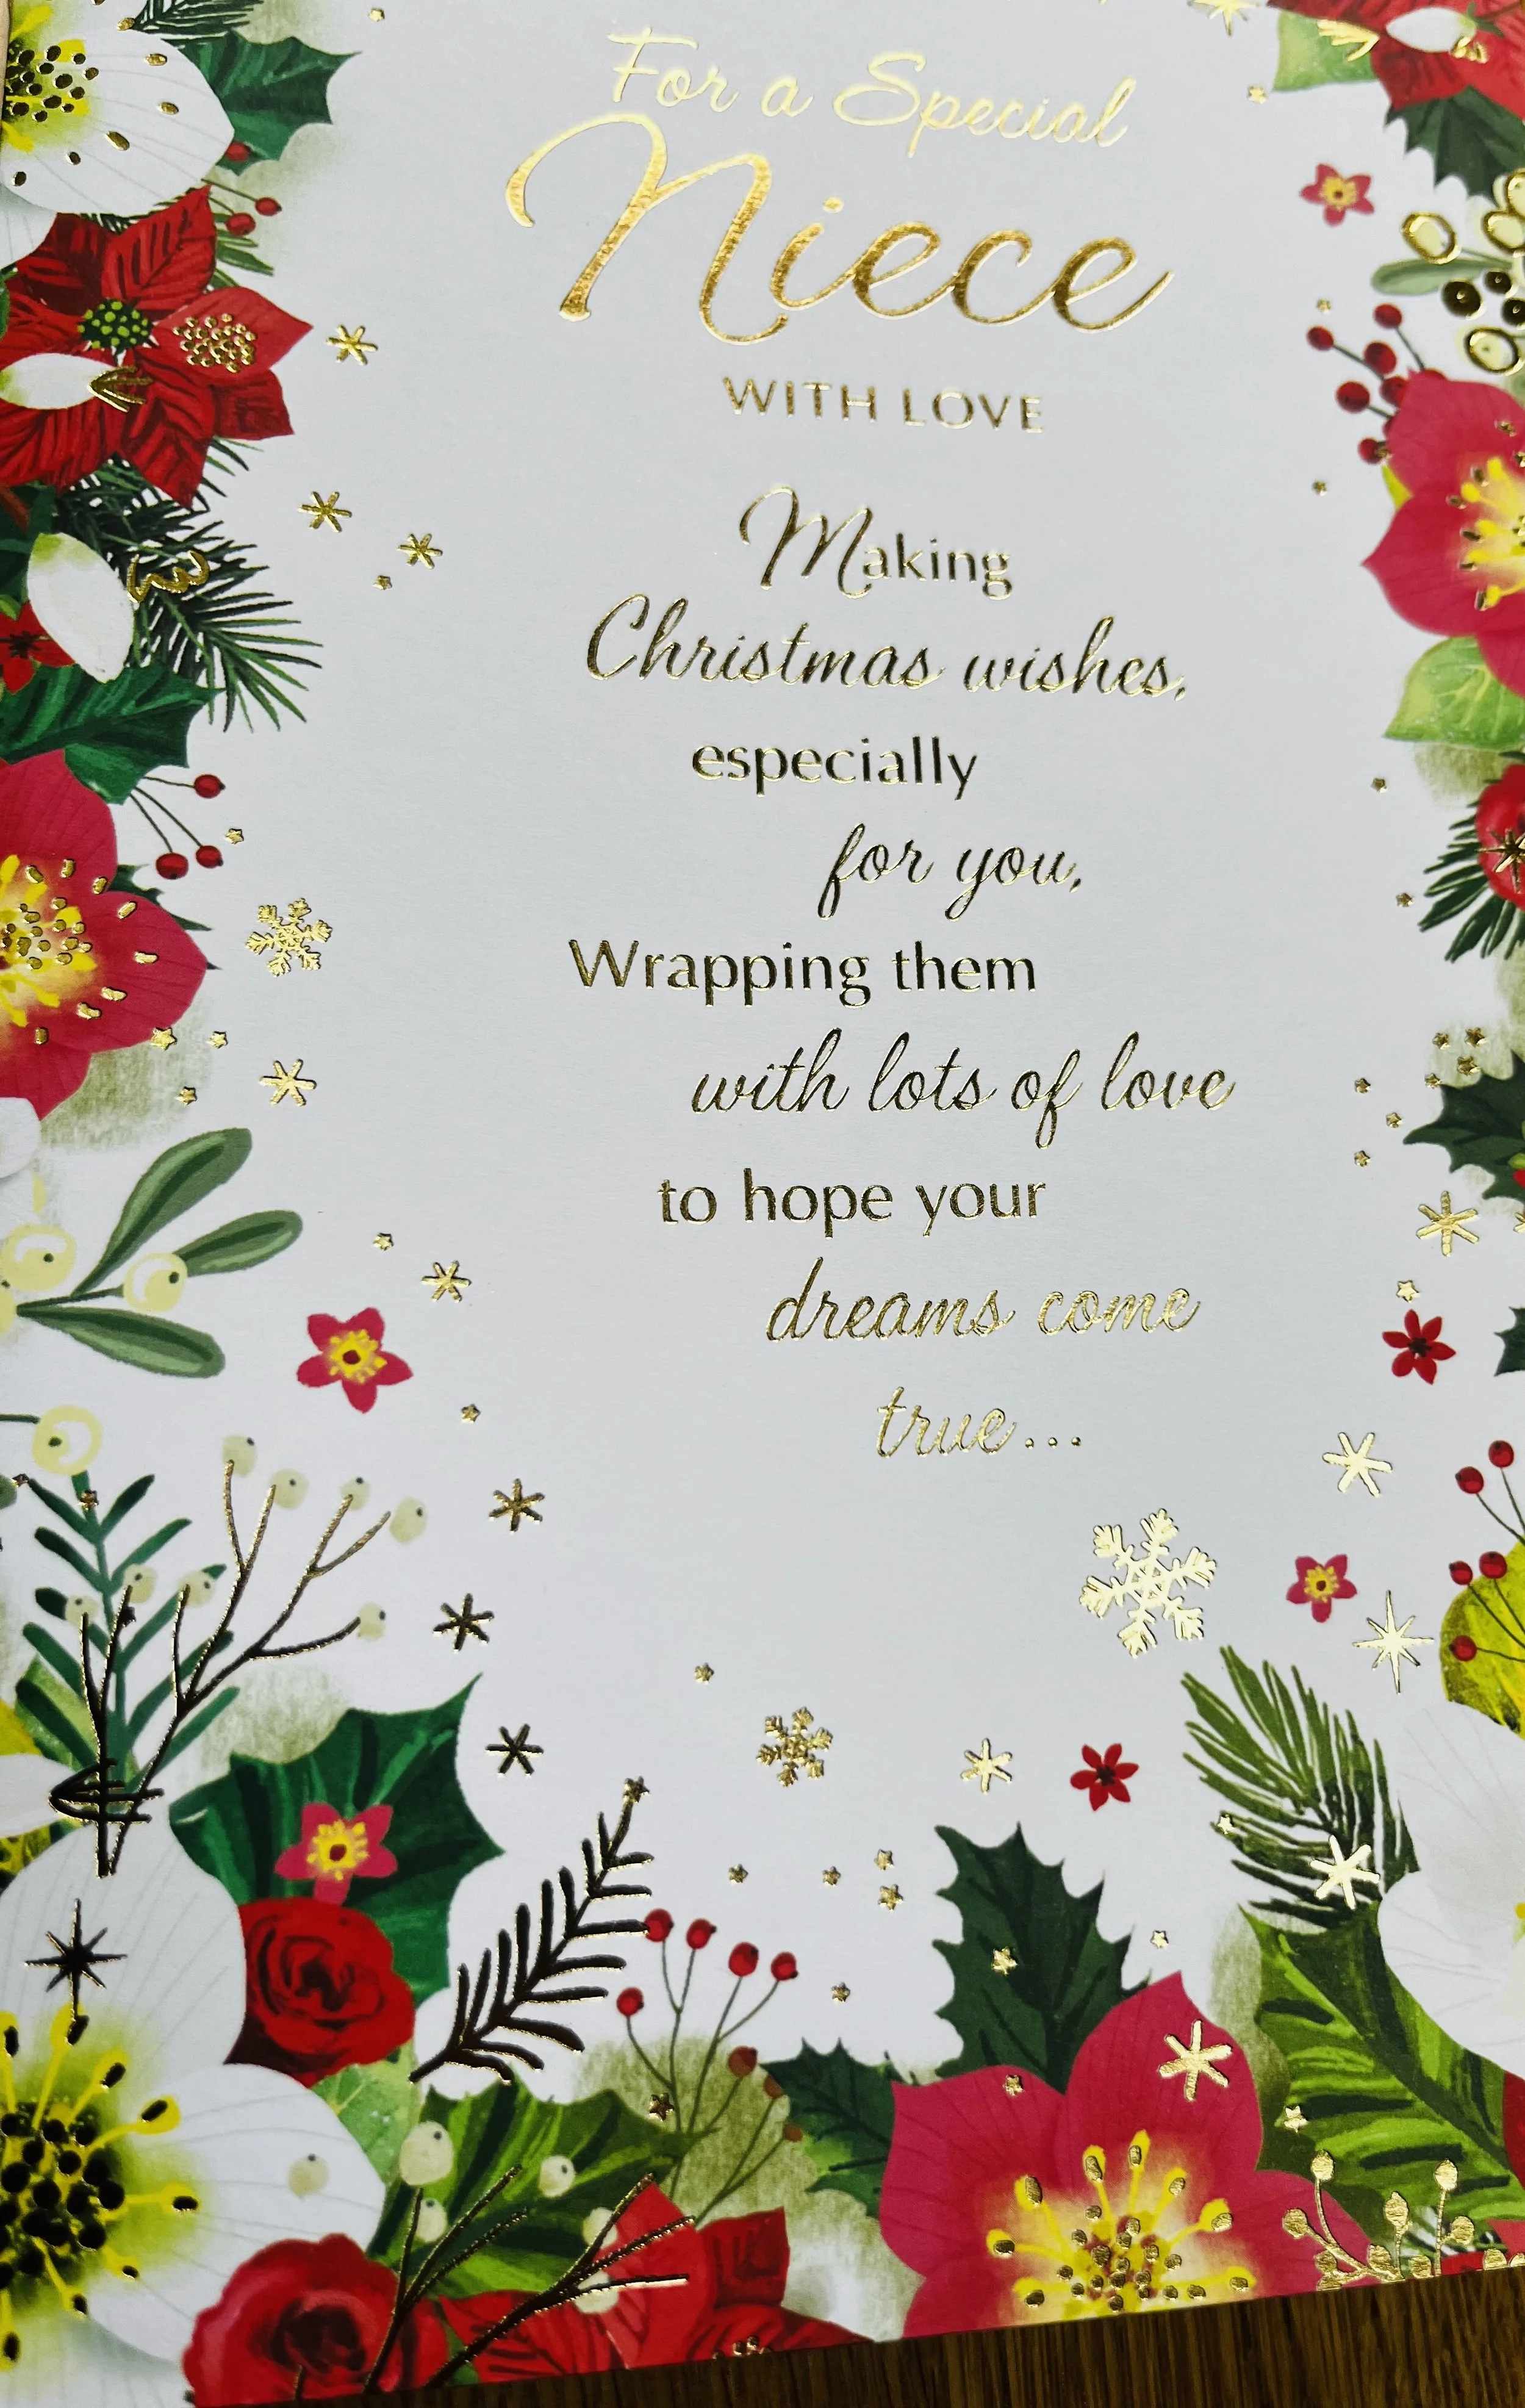 For a Special
Niece
WITH LOVE
Making
Christmas wishes,
especially
for you,
Wrapping them
with lots of love
to hope your
dreams come
true...